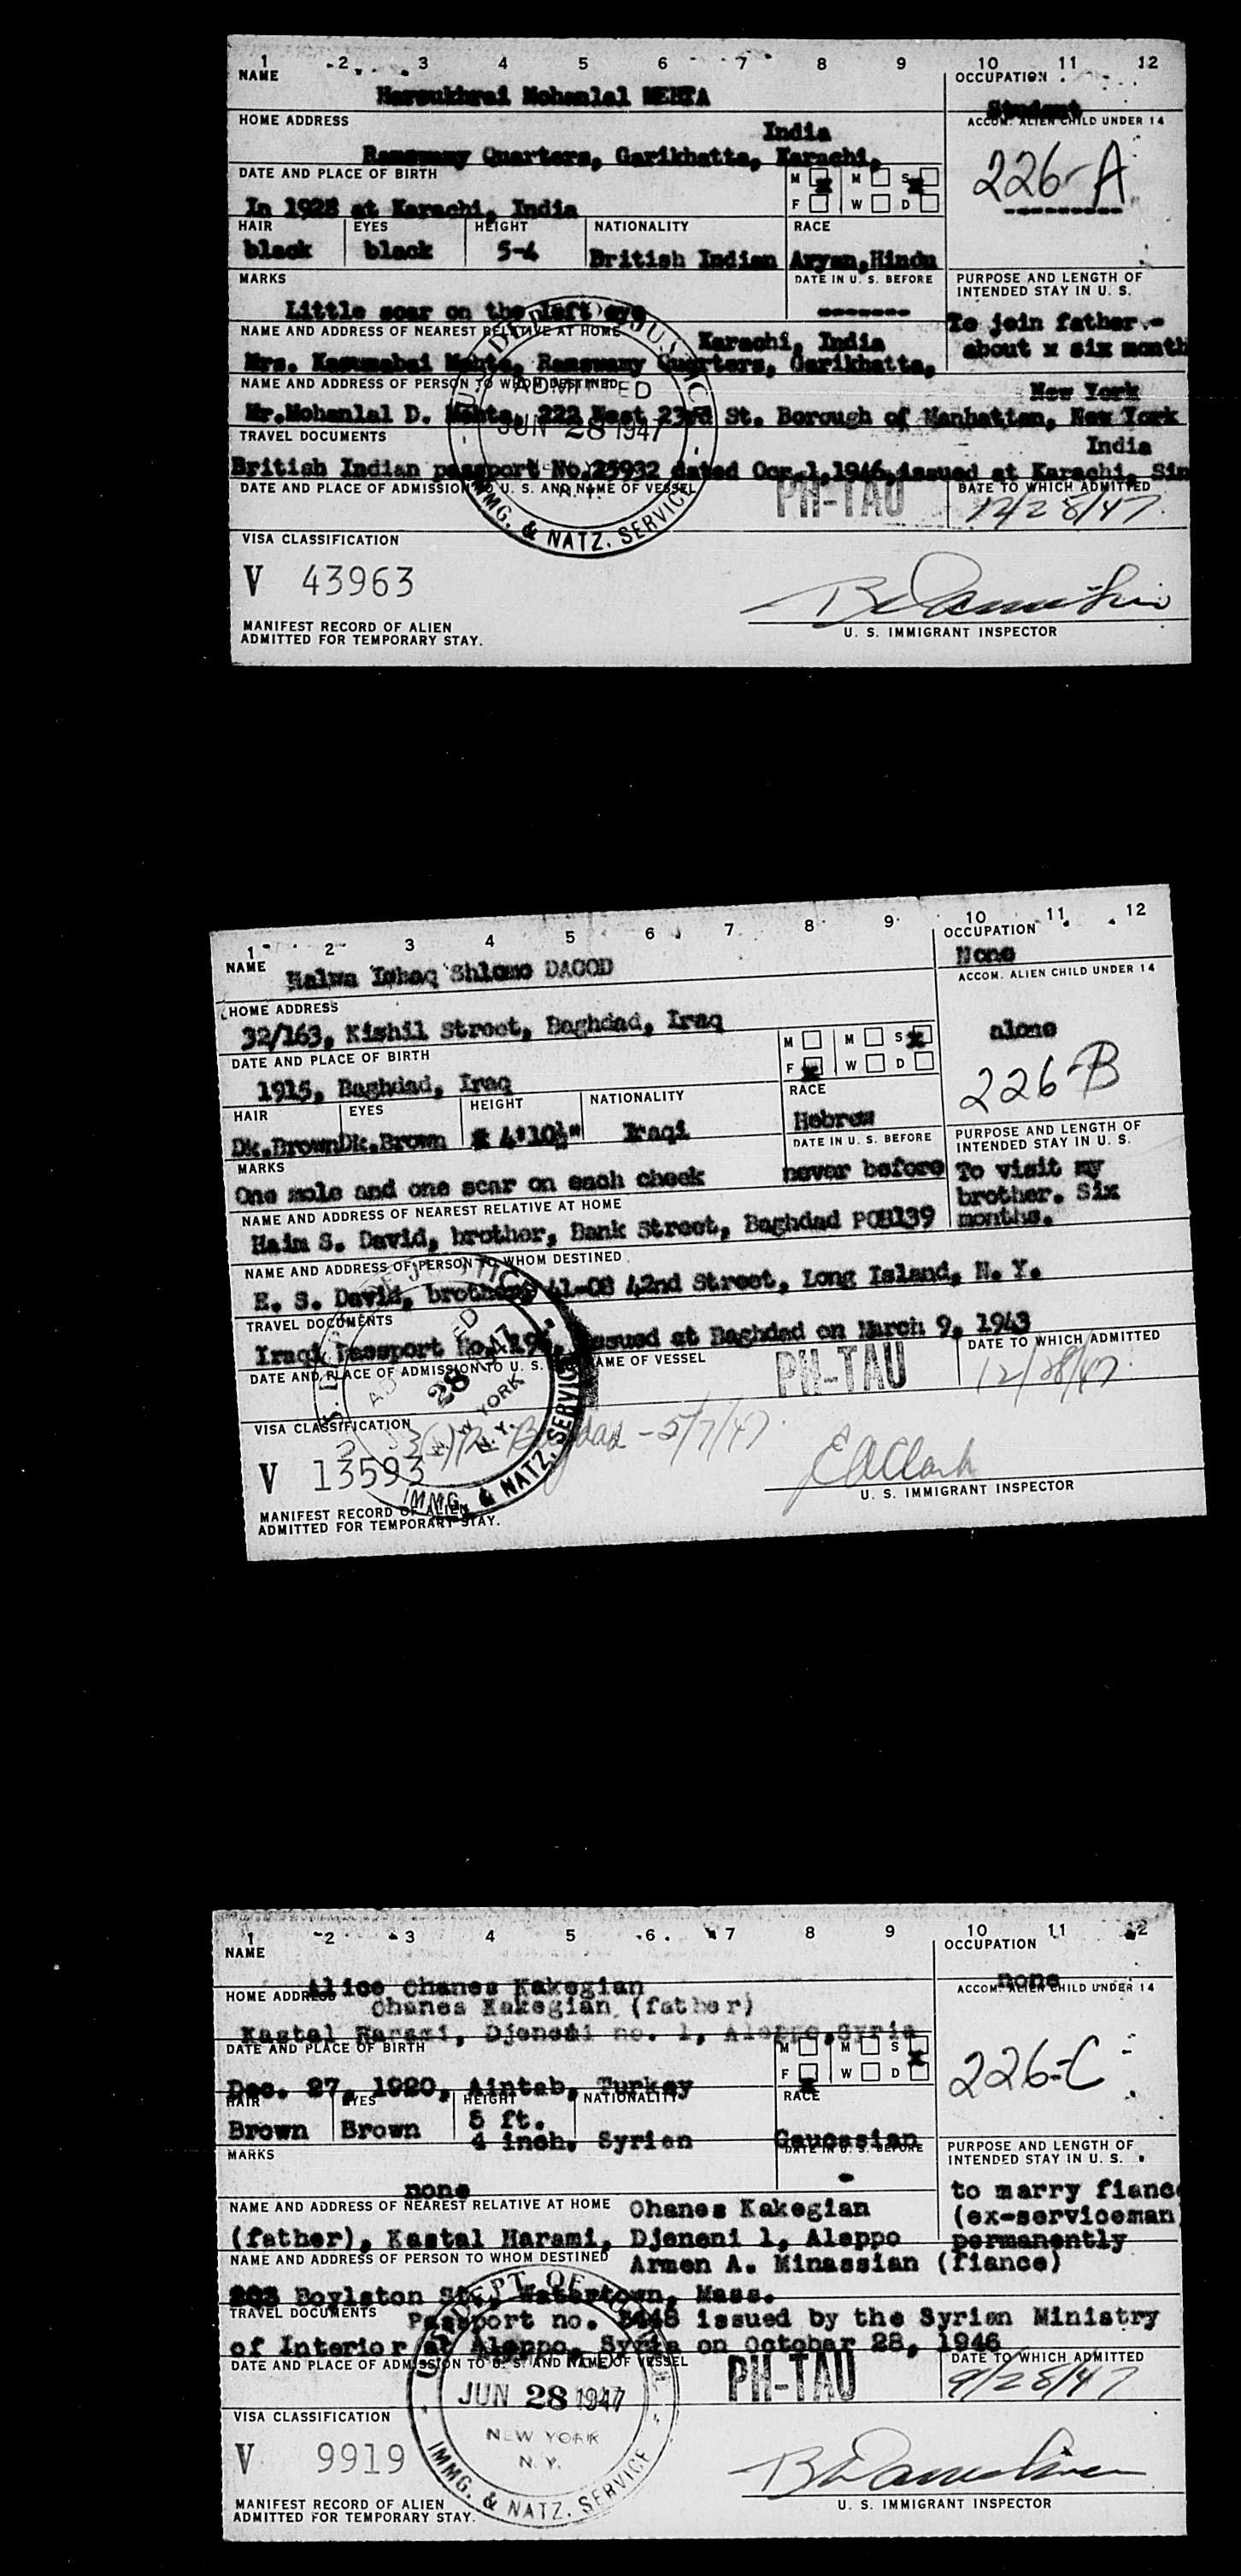 1 2 3 4 5 6 7 8 9 10 11 12
NAME
OCCUPATION
Harsukhrai Mohanlal MEHTA
Student
HOME ADDRESS
ACCOM. ALIEN CHILD UNDER 14
India
Ramswamy Quarters, Garikhatta, Karachi,
226-A
DATE AND PLACE OF BIRTH
M M S
F W D
In 1928 at Karachi, India
HAIR EYES HEIGHT NATIONALITY RACE
black black 5-4 British Indian Aryan,Hindu
MARKS
DATE IN U. S. BEFORE
PURPOSE AND LENGTH OF
INTENDED STAY IN U. S.
Little scar on the left eye
To join father.-
about x six month
NAME AND ADDRESS OF NEAREST RELATIVE AT HOME
Karachi, India
Mrs. Kasumabai Mehta, Ramswamy Quarters, Garikhatta,
NAME AND ADDRESS OF PERSON TO WHOM DESTINED
New York
Mr.Mohanlal D. Mehta, 222 West 23rd St. Borough of Manhattan, New York
TRAVEL DOCUMENTS
India
British Indian passport No.25932 dated Ocr.1,1946,issued at Karachi, Sin
DATE AND PLACE OF ADMISSION TO U. S. AND NAME OF VESSEL
PH-TAU
DATE TO WHICH ADMITTED
12/28/47
ADMITTED
JUN 28 1947
IMMG. & NATZ. SERVICE
VISA CLASSIFICATION
V 43963
MANIFEST RECORD OF ALIEN
ADMITTED FOR TEMPORARY STAY.
U. S. IMMIGRANT INSPECTOR
1 2 3 4 5 6 7 8 9 10 11 12
NAME
OCCUPATION
Halwa Ishaq Shlomo DAOOD
None
HOME ADDRESS
ACCOM. ALIEN CHILD UNDER 14
32/163, Kishil Street, Baghdad, Iraq
alone
DATE AND PLACE OF BIRTH
M M S
F W D
1915, Baghdad, Iraq
226-B
HAIR EYES HEIGHT NATIONALITY RACE
Dk.Brown Dk.Brown 4'10½" Iraqi Hebrew
MARKS
DATE IN U. S. BEFORE
PURPOSE AND LENGTH OF
INTENDED STAY IN U. S.
One mole and one scar on each cheek
never before
To visit my
brother. Six
months.
NAME AND ADDRESS OF NEAREST RELATIVE AT HOME
Haim S. David, brother, Bank Street, Baghdad POB139
NAME AND ADDRESS OF PERSON TO WHOM DESTINED
E. S. David, brother, 41-08 42nd Street, Long Island, N. Y.
TRAVEL DOCUMENTS
Iraqi Passport No. issued at Baghdad on March 9, 1943
DATE AND PLACE OF ADMISSION TO U. S. AND NAME OF VESSEL
PH-TAU
DATE TO WHICH ADMITTED
12/28/47
28
NEW YORK
N. Y.
IMMG. & NATZ. SERVICE
VISA CLASSIFICATION
Baghdad - 5/7/47
V 13593
E A Clark
MANIFEST RECORD OF ALIEN
ADMITTED FOR TEMPORARY STAY.
U. S. IMMIGRANT INSPECTOR
1 2 3 4 5 6 7 8 9 10 11 12
NAME
OCCUPATION
Alice Ohanes Kakegian
none
HOME ADDRESS
ACCOM. ALIEN CHILD UNDER 14
Ohanes Kakegian (father)
Kastal Harami, Djeneni no. 1, Aleppo,Syria
DATE AND PLACE OF BIRTH
M M S
F W D
226-C
Dec. 27, 1920, Aintab, Turkey
HAIR EYES HEIGHT NATIONALITY RACE
Brown Brown 5 ft.
4 inch. Syrian Caucasian
MARKS
DATE IN U. S. BEFORE
PURPOSE AND LENGTH OF
INTENDED STAY IN U. S.
none
to marry fianc
(ex-serviceman
permanently
NAME AND ADDRESS OF NEAREST RELATIVE AT HOME
Ohanes Kakegian
(father), Kastal Harami, Djeneni 1, Aleppo
NAME AND ADDRESS OF PERSON TO WHOM DESTINED
Armen A. Minassian (fiance)
203 Boylston St., Watertown, Mass.
TRAVEL DOCUMENTS
Passport no. 3448 issued by the Syrian Ministry
of Interior at Aleppo, Syria on October 28, 1946
DATE AND PLACE OF ADMISSION TO U. S. AND NAME OF VESSEL
PH-TAU
DATE TO WHICH ADMITTED
9/28/47
DEPT OF
JUN 28 1947
NEW YORK
N. Y.
IMMG. & NATZ. SERVICE
VISA CLASSIFICATION
V 9919
MANIFEST RECORD OF ALIEN
ADMITTED FOR TEMPORARY STAY.
U. S. IMMIGRANT INSPECTOR